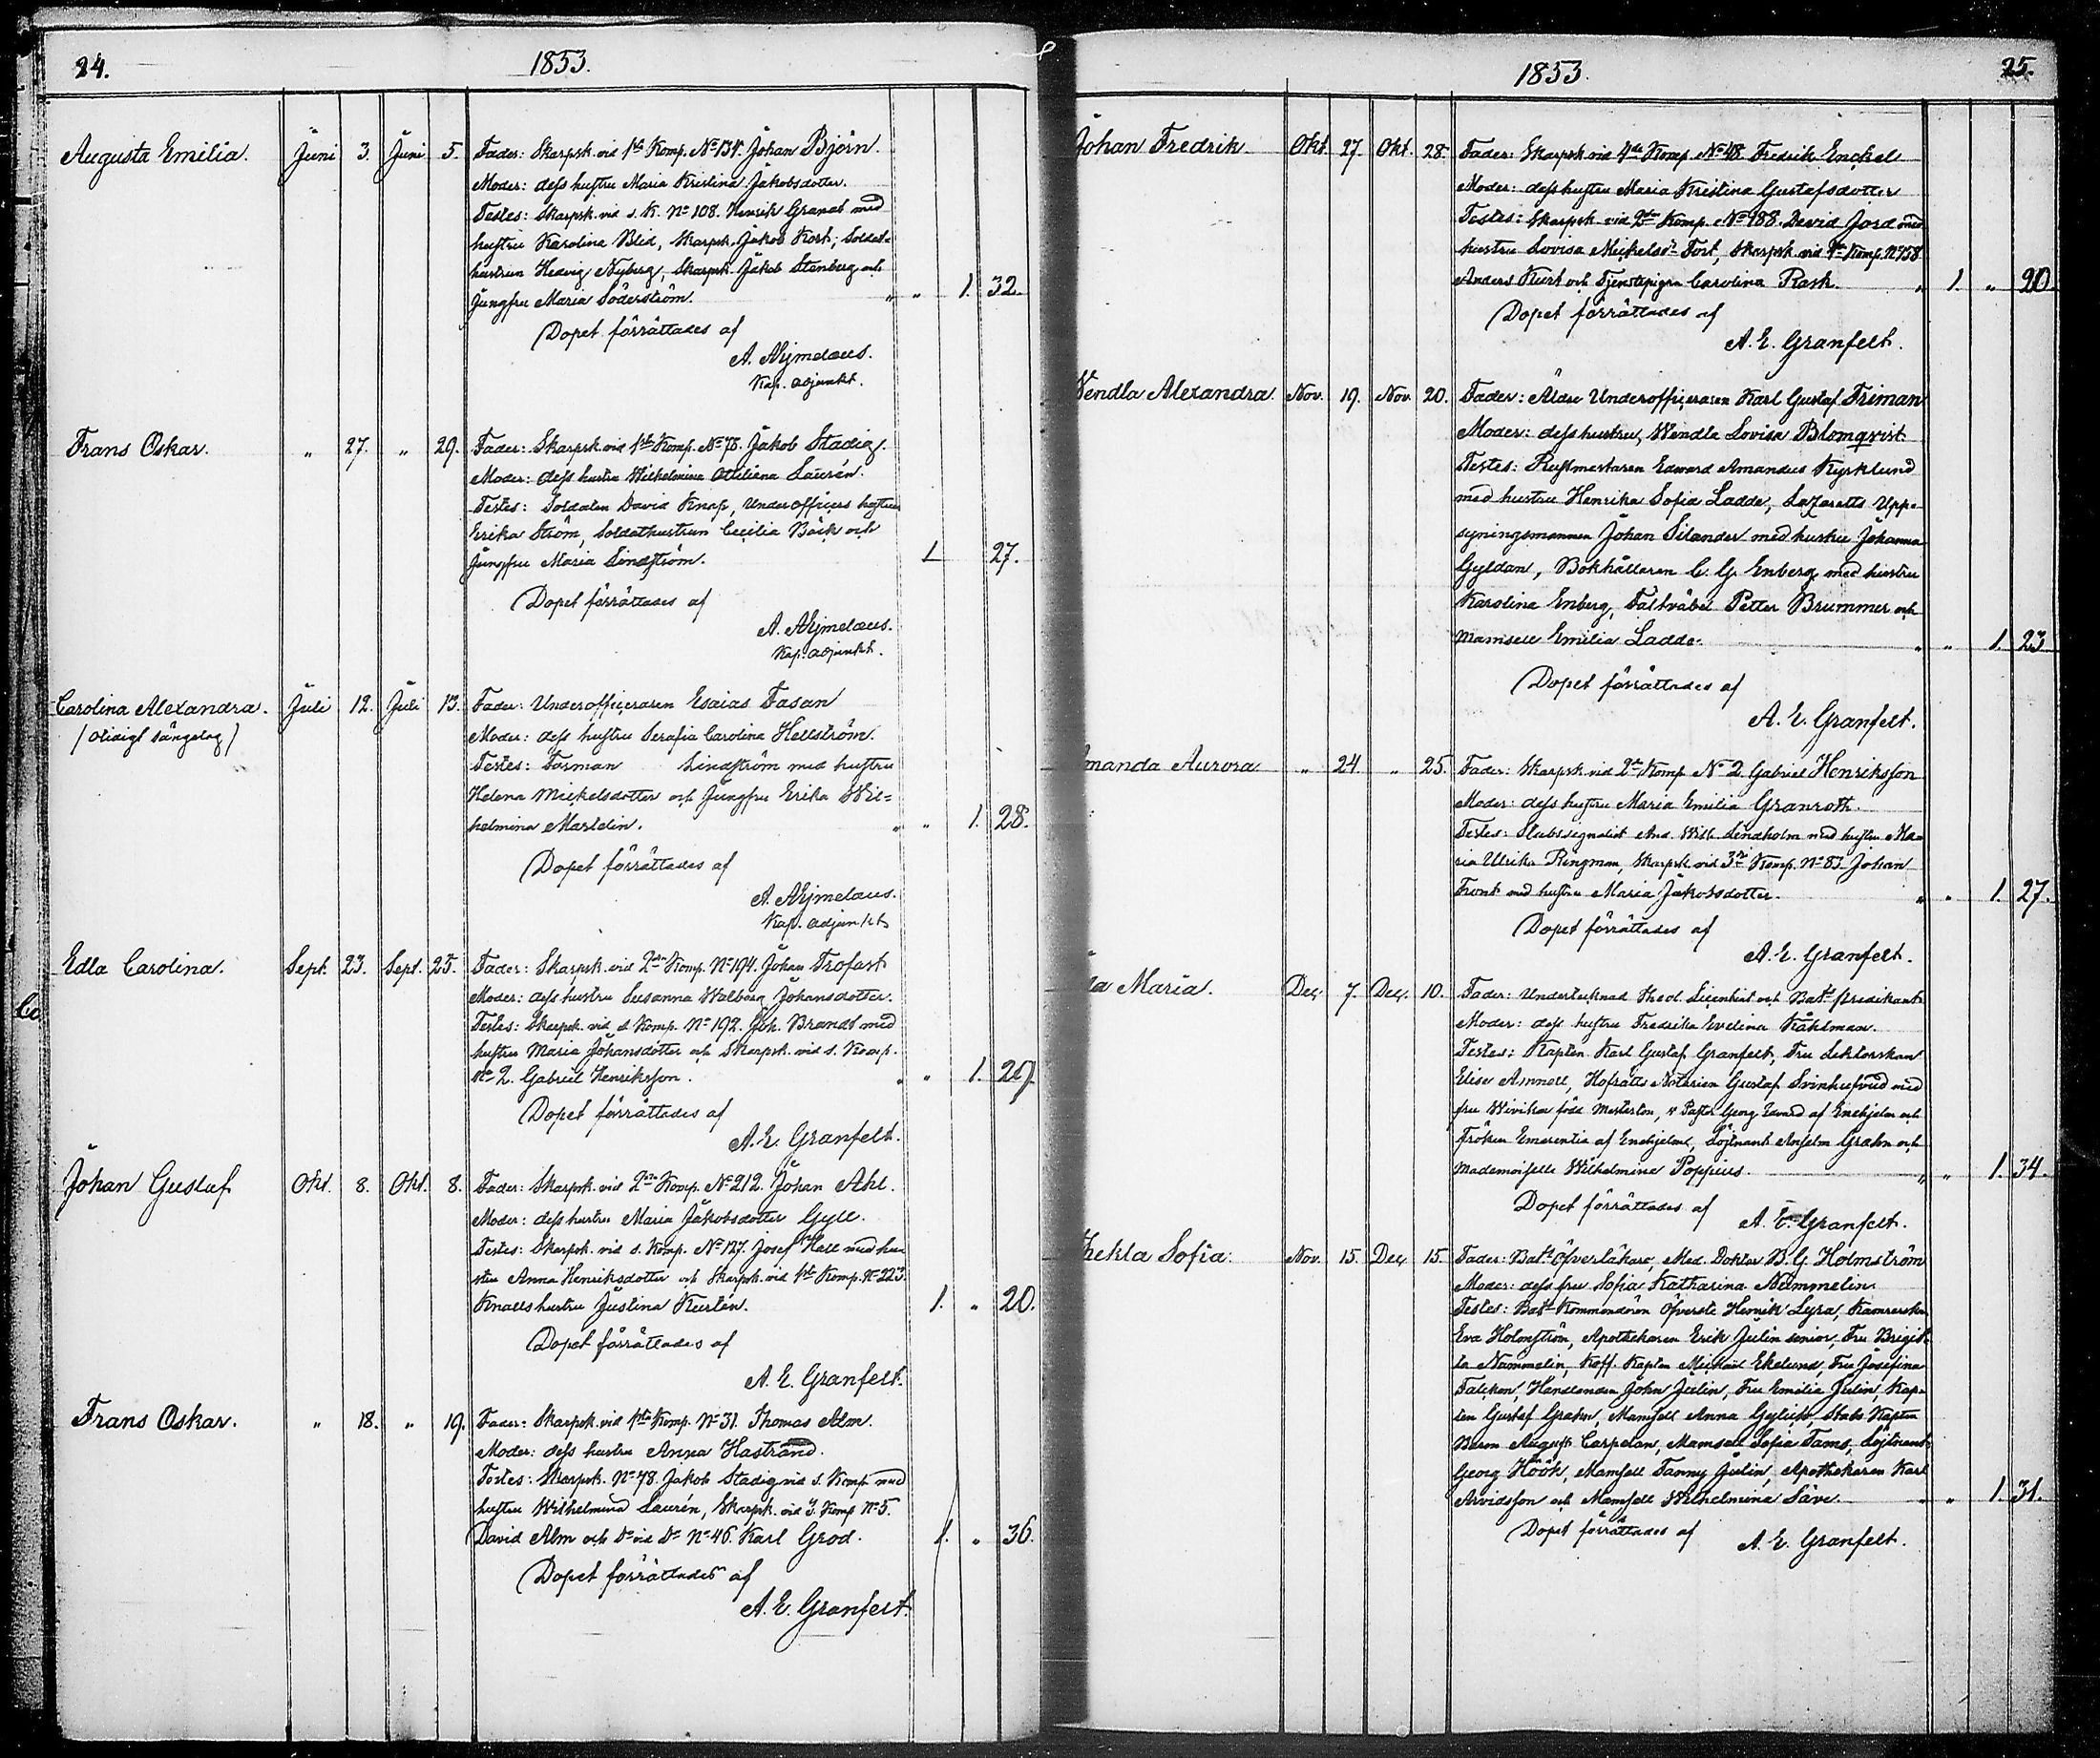 24.
1853.
Augusta Emilia. Juni 3. Juni 5. Fader: Skarpsk. vid 1sta Komp. No 134. Johan Björn.
Moder: dess hustru Maria Kristina Jakobsdotter.
Testes: Skarpsk. vid s. K. No 108. Henrik Granat med
hustru Karolina Blid, Skarpsk. Jakob Kort, Soldat-
hustrun Hedvig Nyberg, Skarpsk. Jakob Stenberg och
Jungfru Maria Söderström. " " 1. 32.
Dopet förrättades af
A. Nymalæus.
Kap. adjunkt.
Frans Oskar. " 27. " 29. Fader: Skarpsk. vid 1sta Komp. No 78. Jakob Stadig.
Moder: dess hustru Wilhelmina Ottiliana Laurén.
Testes: Soldaten David Knap, Underofficers hustrun
Erika Ström, Soldathustrun Cecilia Bäck och
Jungfru Maria Lindström. 1 27.
Dopet förrättades af
A. Nymalæus.
Kap. adjunkt.
Carolina Alexandra. Juli 12. Juli 13. Fader: Underofficeraren Esaias Fasan
/ Olidigt sängelag / Moder: dess hustru Serafia Carolina Hellström.
Testes: Forman Lindström med hustru
Helena Mickelsdotter och Jungfru Erika Wil=
helmina Marldin. " " 1. 28.
Dopet förrättades af
A. Nymalæus.
Kap. adjunkt
Edla Carolina. Sept. 23. Sept. 25. Fader: Skarpsk. vid 2dra Komp. No 194. Johan Trofast
Moder: dess hustru Susanna Walborg Johansdotter.
Testes: Skarpsk. vid s. Komp. No 192. Joh. Brandt med
hustru Maria Johansdotter och Skarpsk. vid s. Komp.
No 2. Gabriel Henriksson. " " 1.
Dopet förrättades af
A. E. Granfelt.
Johan Gustaf Okt. 8. Okt. 8. Fader: Skarpsk. vid 2dra Komp. No 212. Johan Ahl.
Moder: dess hustru Maria Jakobsdotter Gyll.
Testes: Skarpsk. vid s. Komp. No 127. Josef Hall med hu-
stru Anna Henriksdotter och Skarpsk. vid 1sta Komp. No 223
Knalls hustru Justina Kurtén. 1. " 20.
Dopet förrättades af
A. E. Granfelt.
Frans Oskar. " 18. " 19. Fader: Skarpsk. vid 1sta Komp. No 31. Thomas Alm.
Moder: dess hustru Anna Hastrand.
Testes: Skarpsk. No 78. Jakob Stadig vid s. Komp. med
hustru Wilhelmina Laurén, Skarpsk. vid 3. Komp No 5.
David Alm och Do vid Do No 46. Karl Grod. 1. " 36.
Dopet förrättades af
A. E. Granfelt.
1853.
25.
Johan Fredrik Okt. 27. Okt. 28. Fader: Skarpsk. vid 4de Komp. No 48. Fredrik Enckel
Moder: dess hustru Maria Kristina Gustafsdotter
Testes: Skarpsk. vid 2dra Komp. No 188. David Jord med
hustru Lovisa Mickelsdr Fort, Skarpsk. vid Komp. No 158
Anders Kurt och Tjenstepigan Carolina Rask. " 1. " 20.
Dopet förrättades af
A. E. Granfelt.
Wendla Alexandra. Nov. 19. Nov. 20. Fader: Äldre Underofficeraren Karl Gustaf Friman
Moder: dess hustru, Wendla Lovisa Blomqvist
Testes: Rustmästaren Edward Amandus Kyrklund
med hustru Henrika Sofia Ladde, Lazaretts Upp-
syningsmannen Johan Silander med hustru Johanna
Gyldan, Bokhållaren C. G. Enberg med hustru
Karolina Enberg, Fältväbel Petter Brummer och
Mamsell Emilia Ladde. " " 1. 23
Dopet förrättades af
A. E. Granfelt.
manda Aurora " 24 " 25. Fader: Skarpsk. vid 2dra Komp No 2 Gabriel Henriksson
Moder: dess hustru Maria Emilia Granroth.
Testes: Stabssignalist And. Wilh. Lindholm med hustru Ma-
ria Ulrika Ringman, Skarpsk. vid 3dje Komp. No 83. Johan
Front med hustru Maria Jakobsdotter. " " 1. 27.
Dopet förrättades af
A. E. Granfelt.
da Maria. Dec. 7. Dec. 10. Fader: Undertecknad Theol. Licentiat och Bat. predikant
Moder: dess hustru Fredrika Evelina Kåhlman.
Testes: Kapten Karl Gustaf Granfelt, Fru Lektorskan
Elise Amnell, Hofrätts Notarien Gustaf Svinhufvud med
fru Wivika född v. Pastor Georg Edvard af Enehjelm och
Fröken Emerentia af Enehjelm, Löjtnant Anselm Grahn och
Mademoiselle Wilhelmine Poppius. " " 1. 34.
Dopet förrättades af
A. E. Granfelt.
hekla Sofia. Nov. 15. Dec. 15. Fader: Bat. Öfverläkare, Med. Doktor B. G. Holmström
Moder: dess fru Sofia Katharina Nummelin
Testes: Bat. Kommendören Öfverste Henrik Lyra, Kamrerskan
Eva Holmström, Apothekaren Erik Julin senior, Fru Brigit-
ta Nummelin, Koff. Kapten Michael Ekelund, Fru Josefina
Falcken, Handlanden John Julin, Fru Emilia Julin, Kap-
ten Gustaf Grahn, Mamsell Anna Gylich, Stabs Kapten
Baron August Carpelan, Mamsell Sofia Tams, Löjtnant
Georg Höök, Mamsell Fanny Julin, Apothekaren Karl
Arvidsson och Mamsell Wilhelmina Säve. " " 1. 31.
Dopet förrättades af A. E. Granfelt.